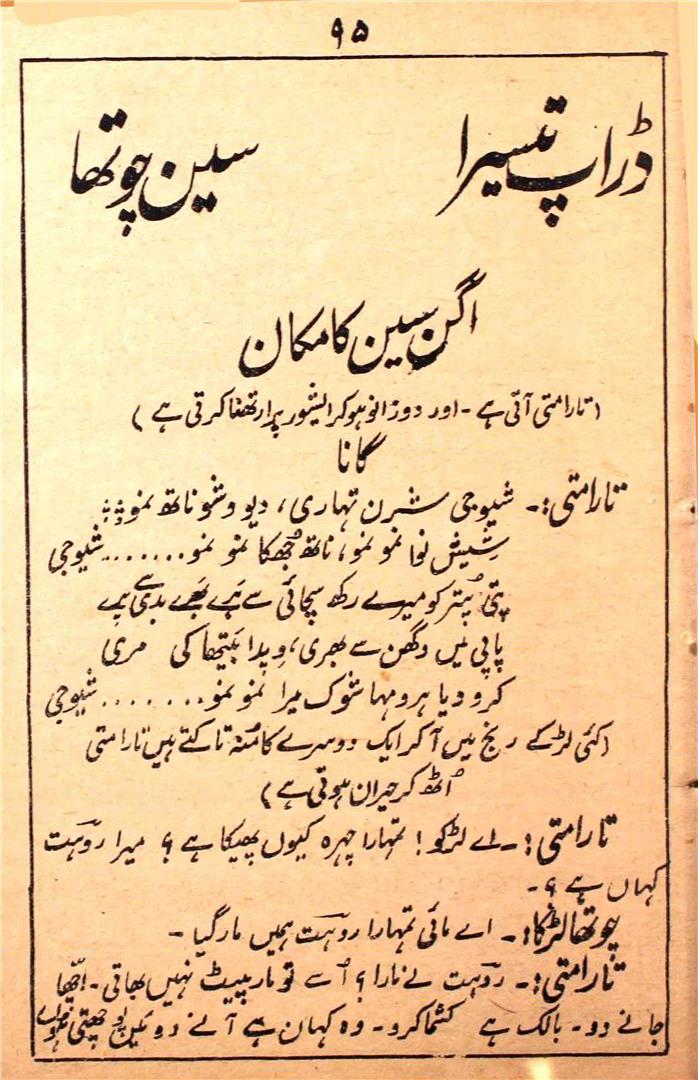 ۹۵
ڈراپ تیسرا سین چوتھا
اگن سین کا مکان
(تارامتی آتی ہے۔ اور دوزانو ہوکر ایشور پرارتھنا کرتی ہے)
گانا
تارامتی:۔ شیوجی شرن تمہاری، دیو وشوناتھ نمو
شیش نوا نمو نمو، ناتھ جُھکا نمو نمو.......شیوجی
پتی پُتر کو میرے رکھ سچائی سے ہَرے بھَرے بدی سے پرے
پاپی میں دگھن سے بھری، وِپدا بَیتھا کی مری
کرو دیا ہرو مہا شوک میرا نمو نمو........شیوجی
(کئی لڑکے رنج میں آکر ایک دوسرے کا مُنہ تاکتے ہیں تارامتی
اُٹھ کر حیران ہوتی ہے)
تارامتی:۔ اے لڑکو! تمہارا چہرہ کیوں پھیکا ہے؟ میرا روہت
کہاں ہے؟۔
چوتھا لڑکا:۔ اے مائی تمہارا روہت ہمیں مار گیا۔
تارامتی:۔ روہت نے مارا؟ اُسے تو مار پیٹ نہیں بھاتی۔ اچّھا
جانے دو۔ بالک ہے کشما کرو۔ وہ کہاں ہے آنے دو میَں